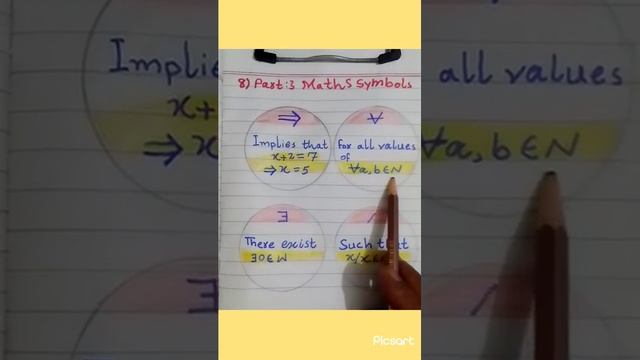 8) Part:3 Maths Symbols
⇒
Implies that
x+2=7
⇒x=5
∀
For all values
of
∀a, b∈N
∃
There exist
∃0∈W
Such that
Picsart